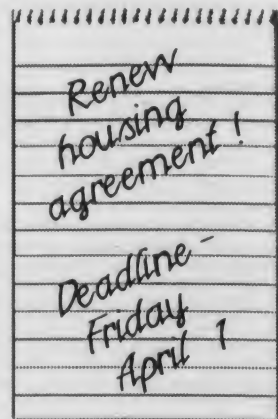 Renew
housing
agreement!
Deadline-
Friday
April 1